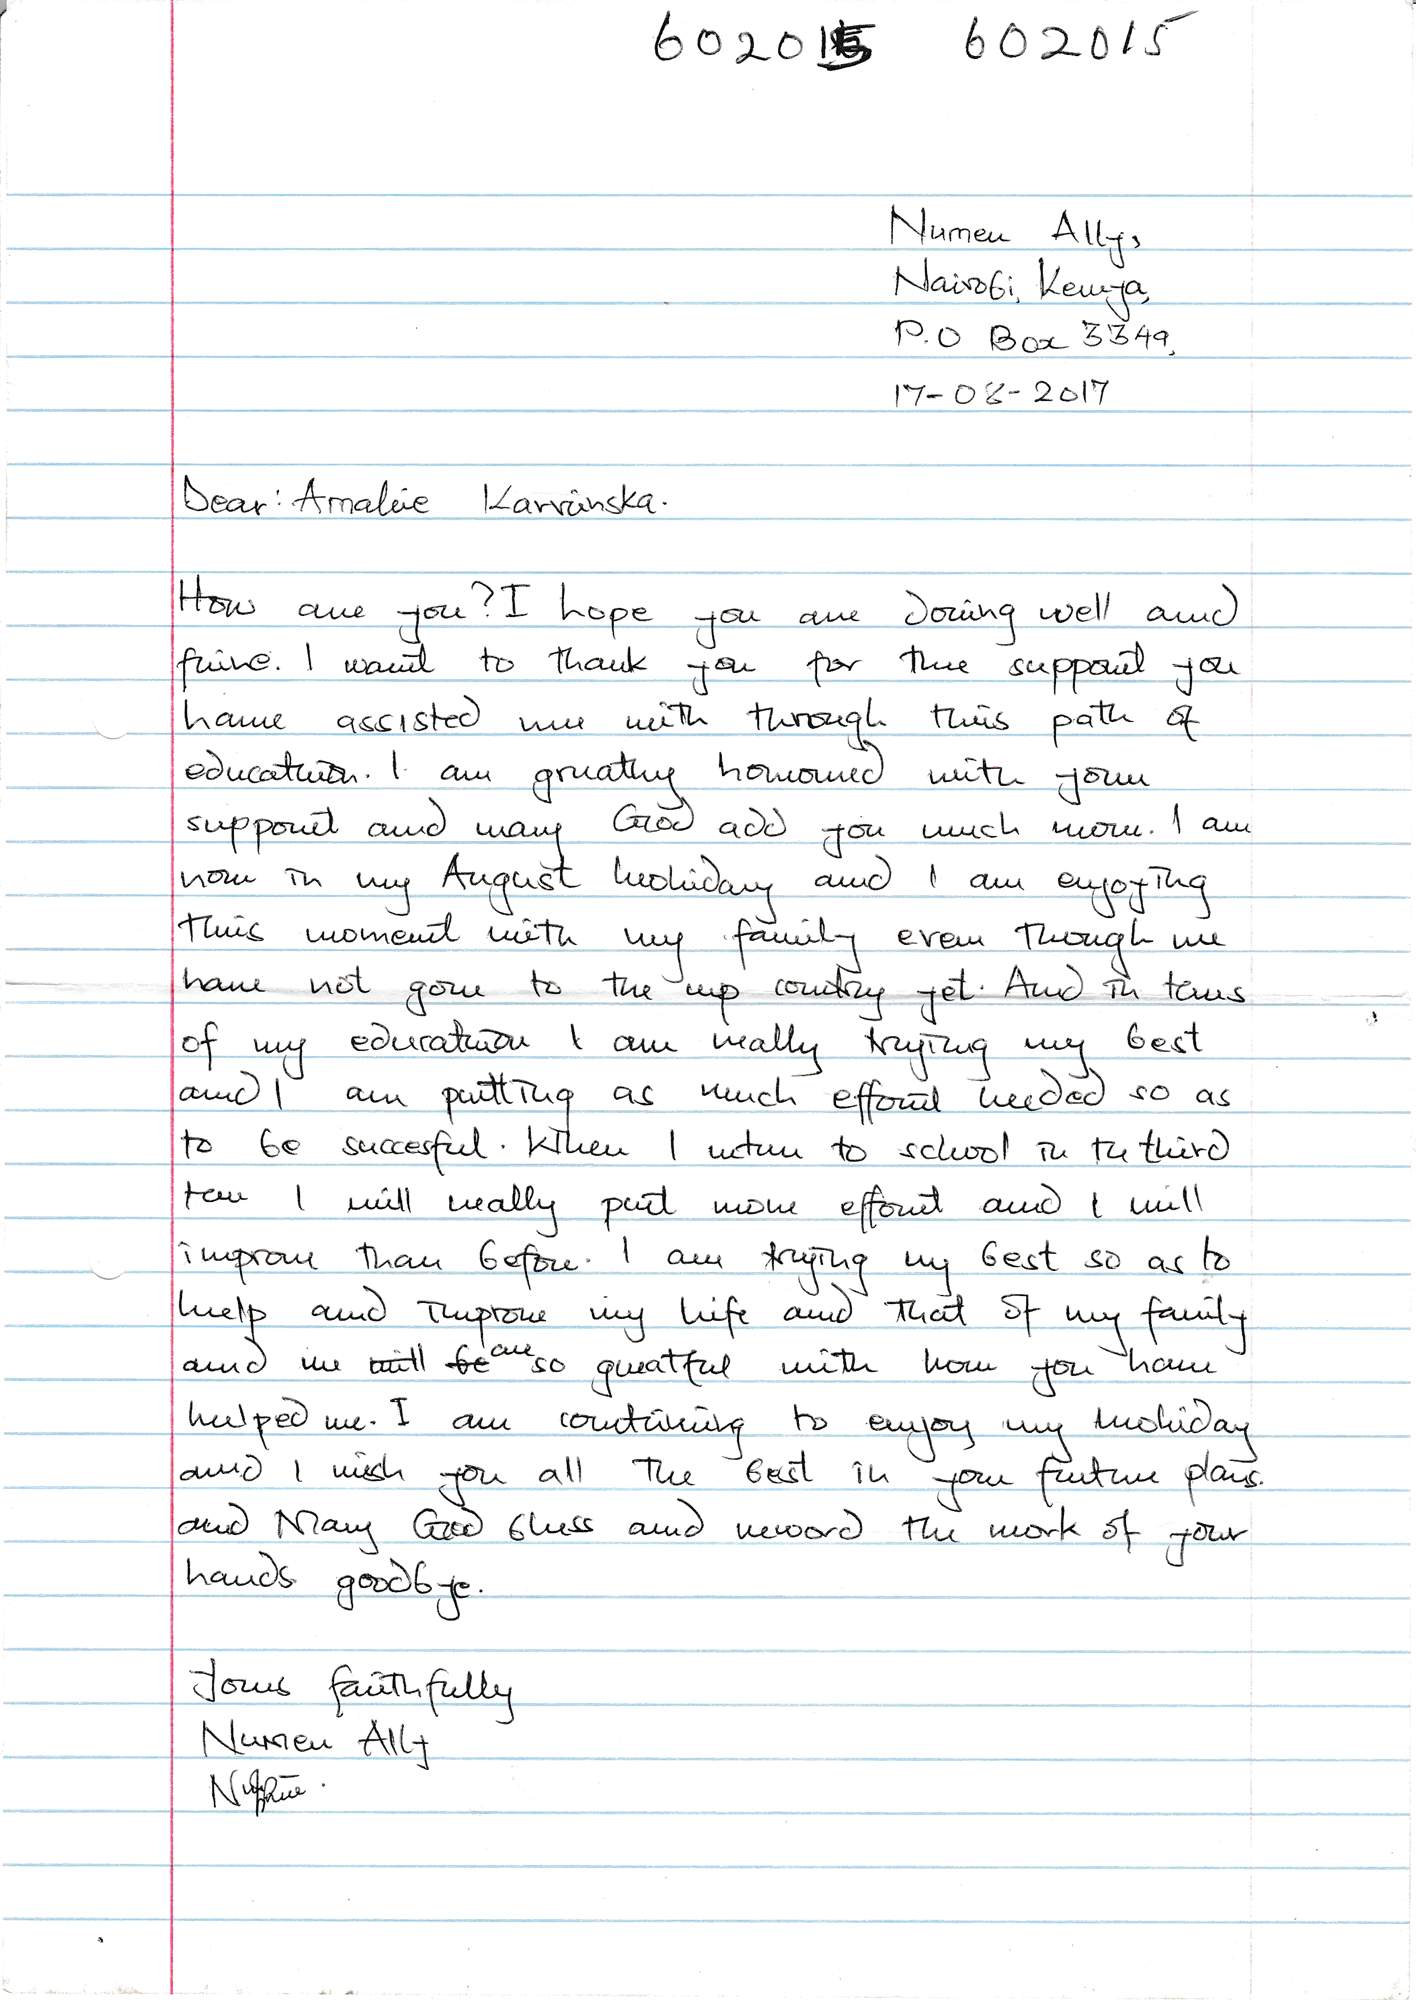 602015 602015
Numeu Ally,
Nairobi, Kenya,
P.O Box 3349,
17-08-2017
Dear: Amalie Karvinska.
How are you? I hope you are doing well and
fine. I want to thank you for the support you
have assisted me with through this path of
education. I am greatly honoured with your
support and may God add you much more. I am
now in my August holiday and I am enjoying
this moment with my family even though we
have not gone to the up country yet. And in terms
of my education I am really trying my best
and I am putting as much effort needed so as
to be succesful. When I return to school in the third
term I will really put more effort and I will
improve than before. I am trying my best so as to
help and improve my life and that of my family
and we will be are so greatful with how you have
helped me. I am contining to enjoy my holiday
and I wish you all the best in your future plans.
and May God bless and reword the work of your
hands goodbye.
Yours faithfully
Numeu Ally